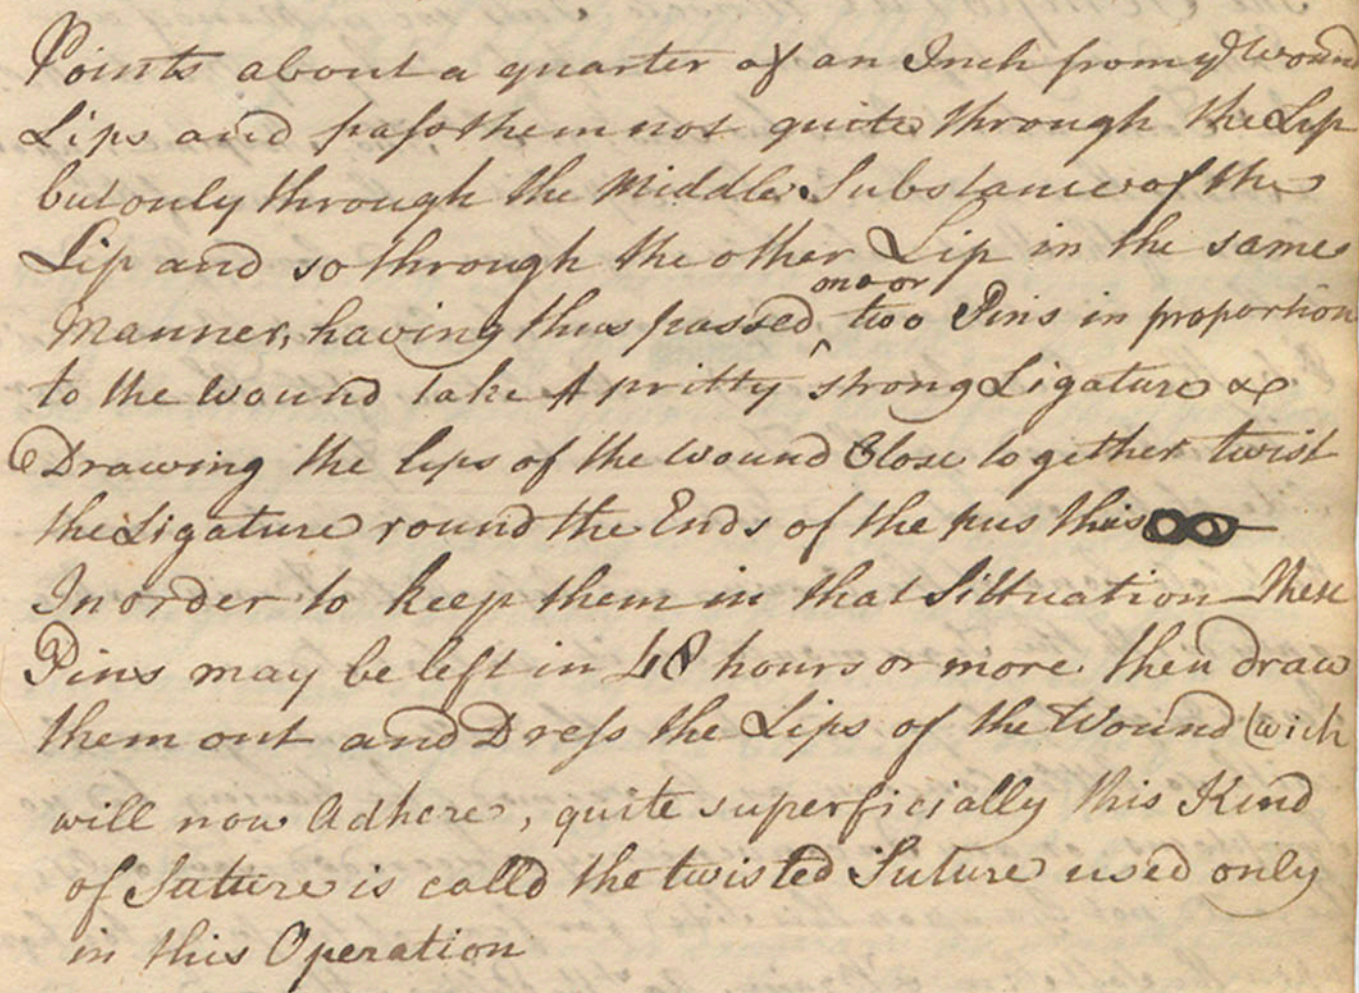 Points about a quarter of an Inch from ye Wound
Lips and pass them not quite through the Lip
but only through the Middle Substance of the
Lip and so through the other Lip in the same
one or
Manner, having thus passed ^ two Pins in proportion
to the Wound take A pritty strong Ligature &
Drawing the lips of the wound Close together twist
the Ligature round the Ends of the pins this ∞
In order to keep them in that Sittuation These
Pins may be left in 48 hours or more then draw
them out and Dress the Lips of the Wound (wich
will now Adhere, quite superficially this Kind
of Suture is calld the twisted Suture used only
in this Operation